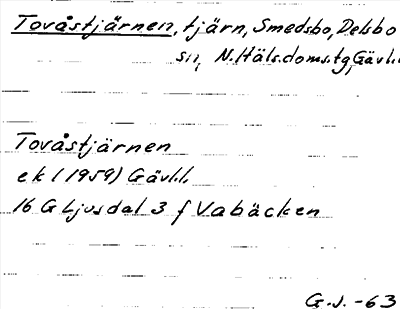 Tovåstjärnen, tjärn, Smedsbo, Delsbo
sn, N. Häls. doms. tg, Gävl.
Tovåstjärnen
ek (1959) Gävl.l.
16 G Ljusdal 3 f Vabäcken
G.J. -63